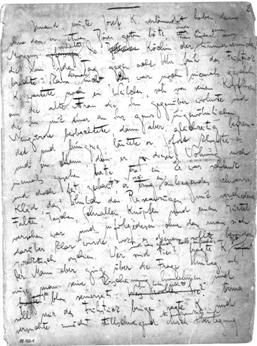 Jemand musste Josef K. verleumdet haben, denn
ohne dass er etwas Böses getan hätte, war er eines
Morgens Die Köchin der
jeden Tag gegen acht Uhr früh das Früh
brachte, kam diesmal nicht. Das war noch niemals
K. wartete noch ein Weilchen, sah von seinem
aus die alte Frau die ihm gegenüber wohnte und
die ihn mit einer an ihr ganz ungewöhnlichen
Neugierde beobachtete, dann aber, gleichzeitig befremdet
und hungrig, läutete er. Sofort klopfte
es und ein Mann, den er in dieser Wohnung noch
niemals gesehen hatte trat ein. Er war schlank
und doch fest gebaut, er trug ein anliegendes schwarzes
Kleid, das ähnlich den Reiseanzügen mit verschiedenen
Falten, Taschen, Schnallen, Knöpfen und einem Gürtel
versehen war und infolgedessen, ohne dass man sich
darüber klar wurde,
praktisch erschien. Wer sind
der Mann aber ging über die Frage hinweg, als
müsse man seine Erscheinung hinnehmen und
sagte bloss seinerseits: Anna
soll mir das Frühstück bringen, sagte K. und
versuchte Aufmerksamkeit und Überlegung